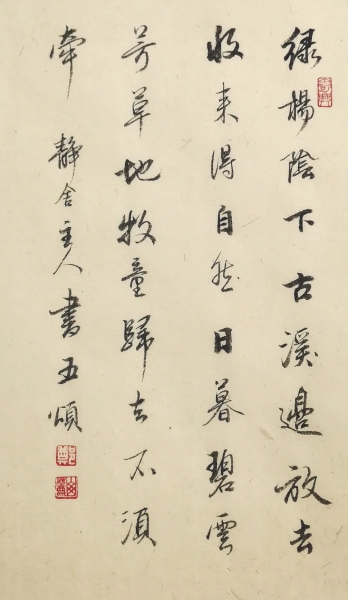 绿楊陰下古溪邊放去
收来得自然日暮碧雲
芳草地牧童歸去不須
牽 靜舍主人書五頌